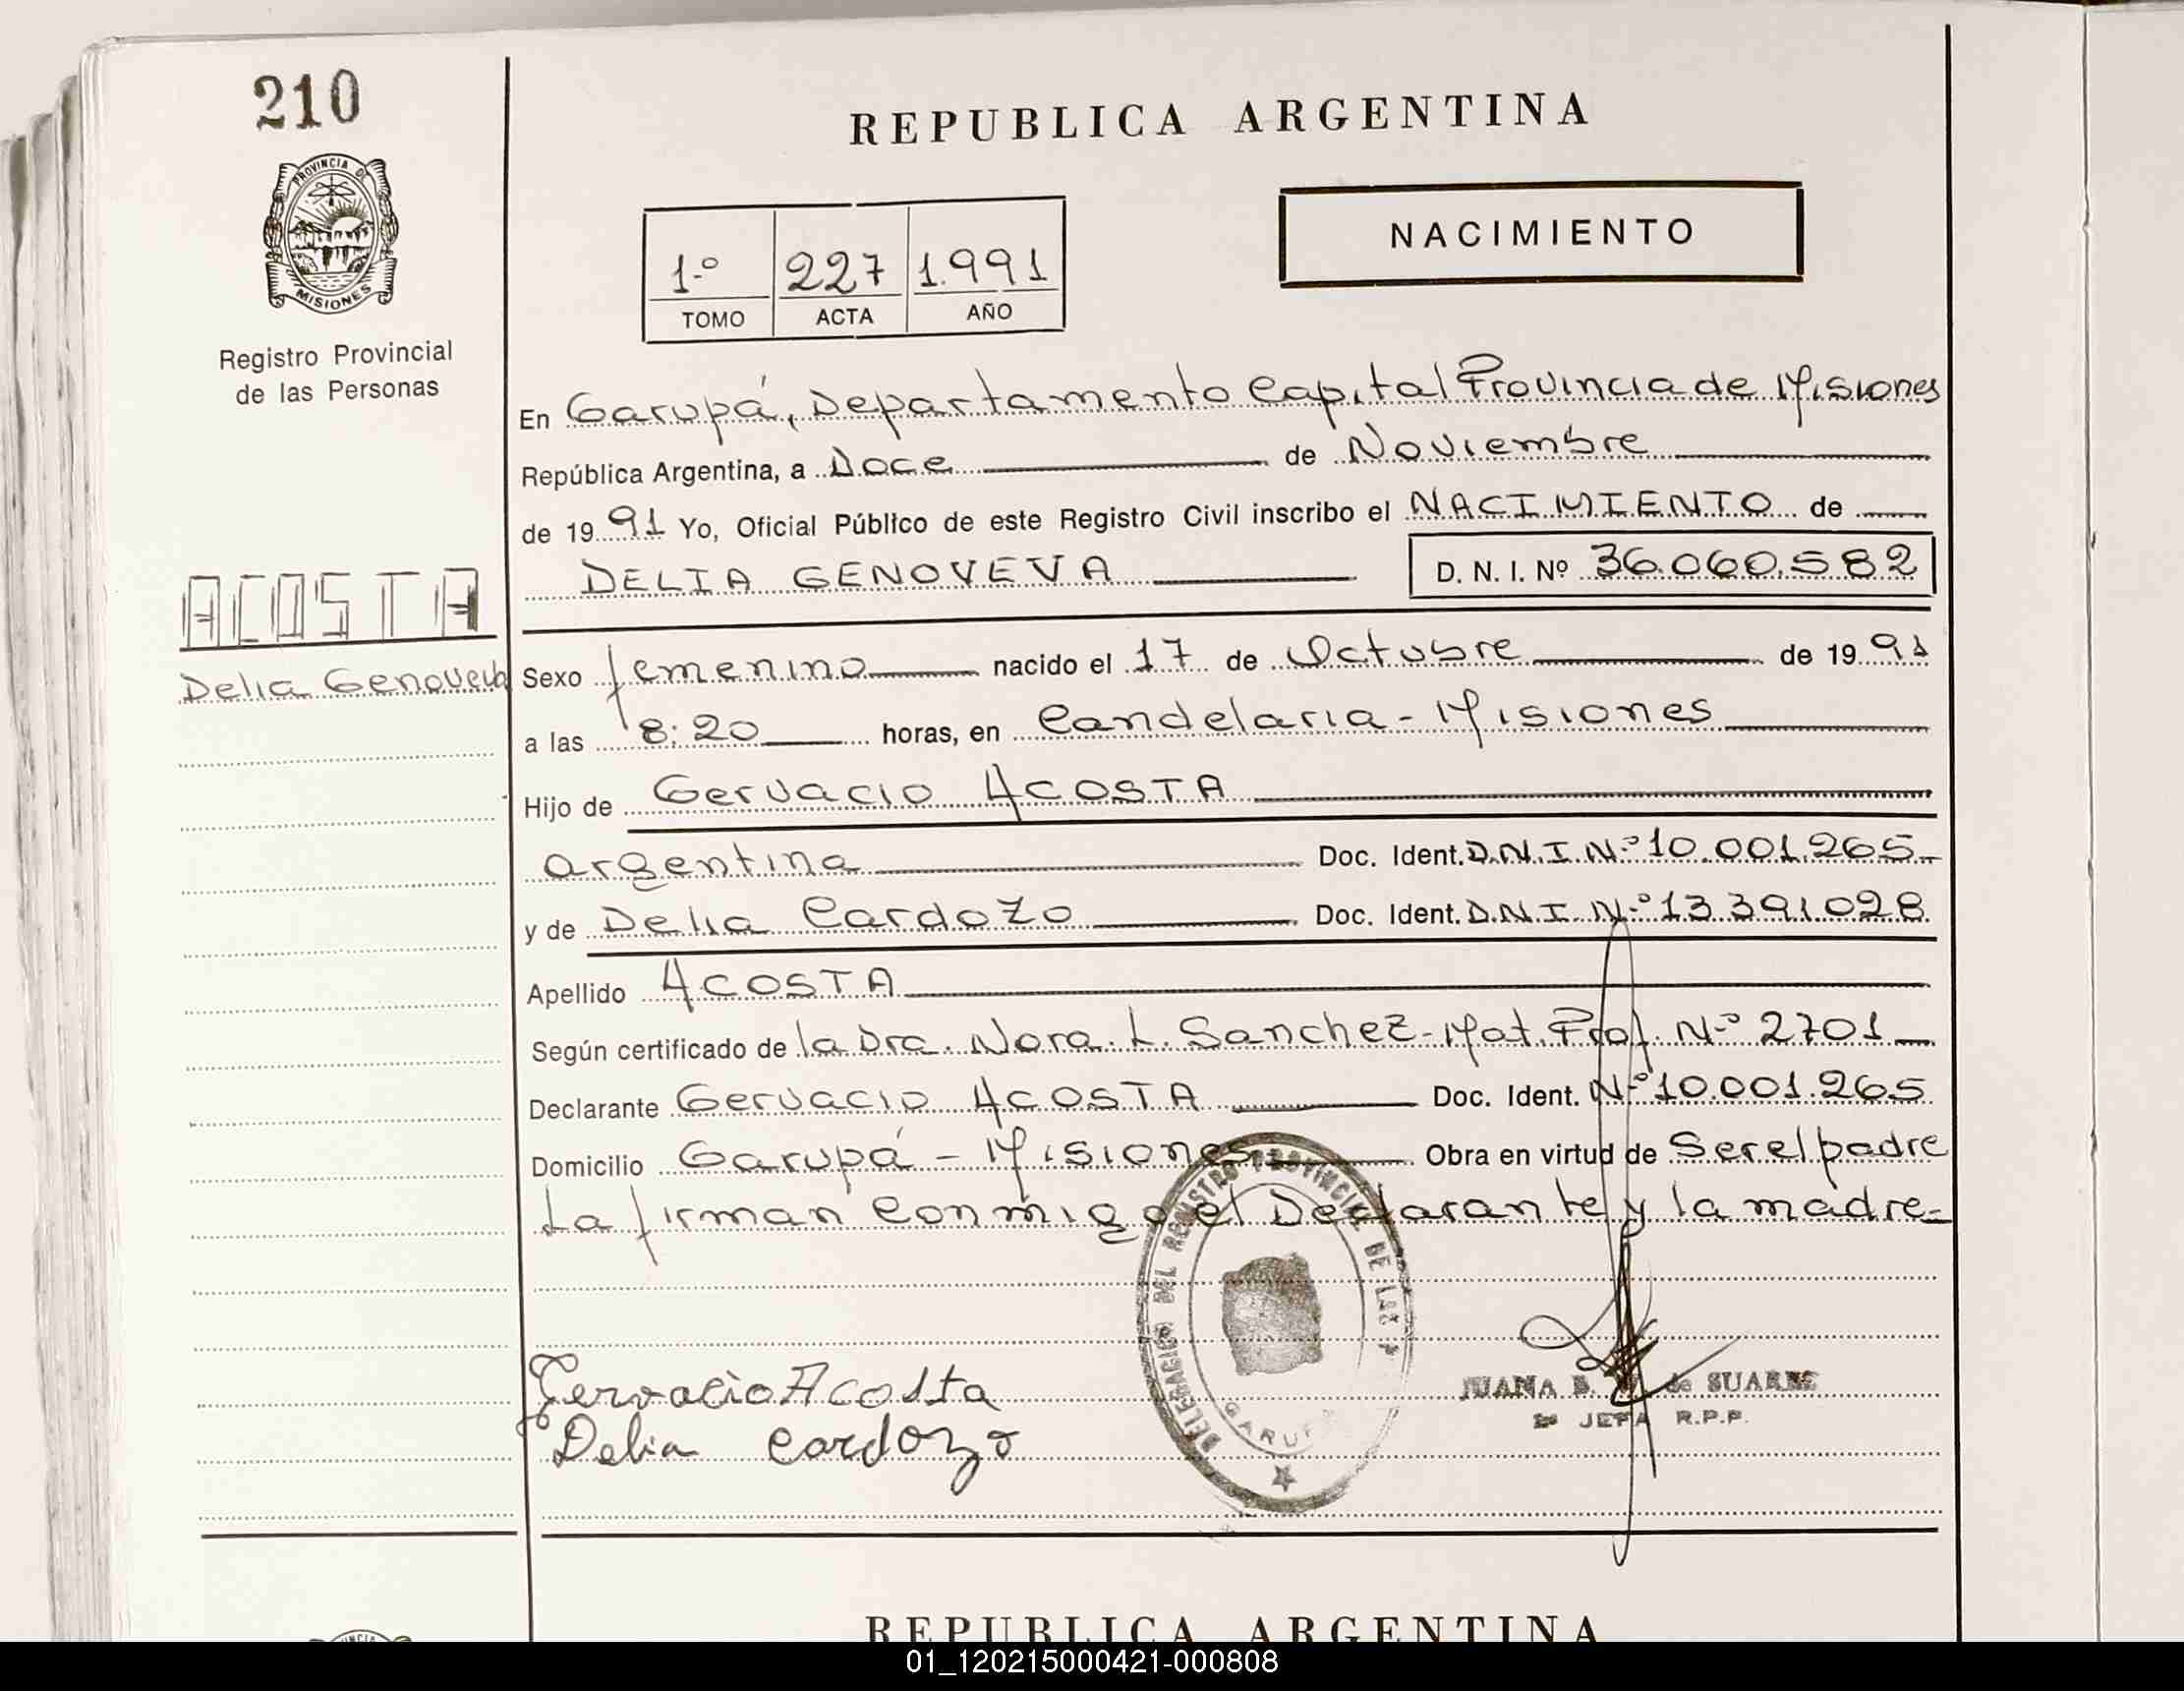 210
PROVINCIA DE
MISIONES
Registro Provincial
de las Personas
REPUBLICA ARGENTINA
1-º 227 1.991
TOMO ACTA AÑO
NACIMIENTO
En Garupá, Departamento Capital Provincia de Misiones
República Argentina, a Doce de Noviembre
de 19 91 Yo, Oficial Público de este Registro Civil inscribo el NACIMIENTO de
DELIA GENOVEVA D. N. I. Nº 36.060.582
ACOSTA
Delia Genoveva
Sexo femenino nacido el 17 de Octubre de 19 91
a las 8:20 horas, en Candelaria - Misiones
Hijo de Gervacio ACOSTA
argentina Doc. Ident. D.N.I.N-º 10.001.265-
y de Delia Cardozo Doc. Ident. D.N.I. N-º 13.391.028
Apellido ACOSTA
Según certificado de la Dra. Nora. L. Sanchez - Mat. Prof. N-º 2701
Declarante Gervacio ACOSTA Doc. Ident. N-º 10.001.265
Domicilio Garupá - Misiones Obra en virtud de Ser el padre
La firman conmigo el Declarante y la madre-
DELEGACION DEL REGISTRO PROVINCIAL DE LAS P
GARUP
Gervacio Acosta
Delia Cardozo
JUANA de SUAREZ
JEFA R.P.P.
REPUBLICA ARGENTINA
01_120215000421-000808